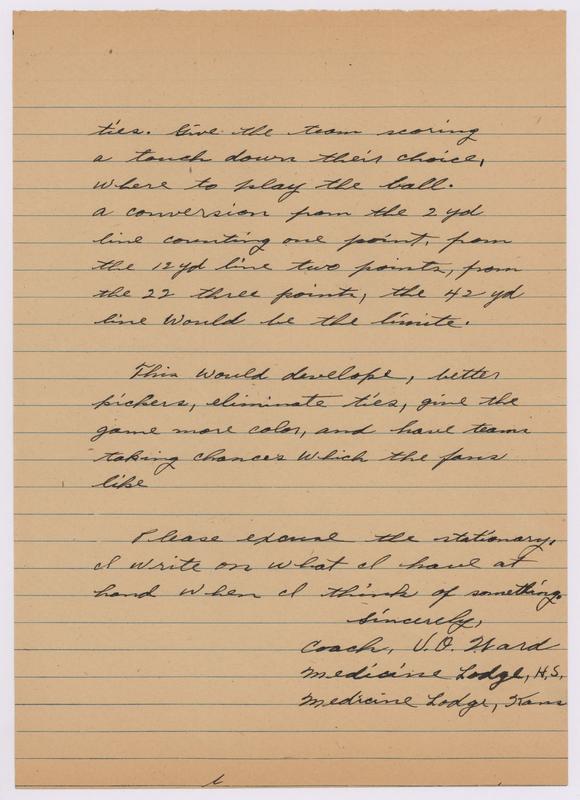 ties. Give the team scoring
a touch down their choice,
where to play the ball.
a conversion from the 2 yd
line counting one point, from
the 12 yd line two points, from
the 22 three points, the 42 yd
line Would be the limite.
This would develope, better
pickers, eliminate ties, give the
game more color, and have teams
taking chances Which the fans
like
Please excuse the stationary.
I write on what I have at
hand when I think of something.
Sincerely,
Coach, V.O. Ward
Medicine Lodge, H.S.
Medicine Lodge, Kans